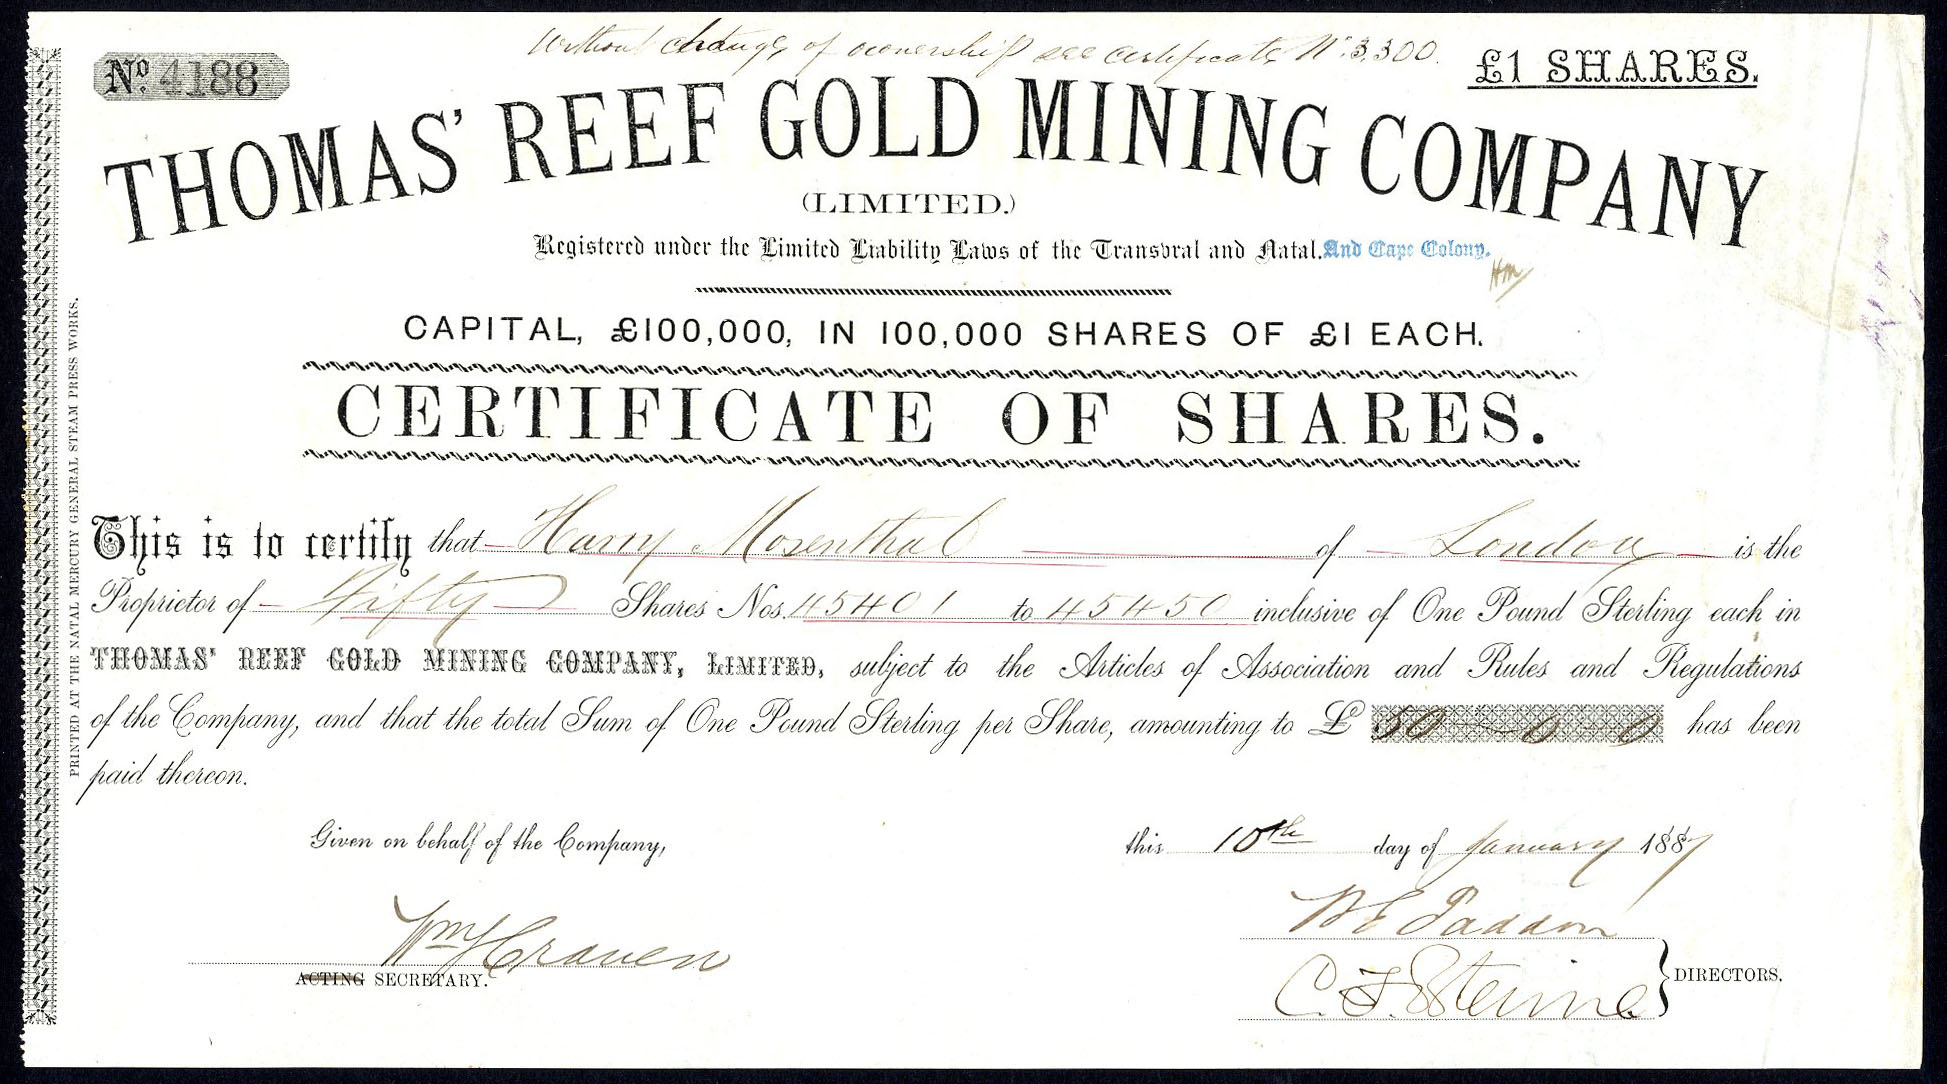 Without change of ownership see certificate No. 3,300.
No. 4188
£1 SHARES.
THOMAS' REEF GOLD MINING COMPANY
(LIMITED.)
Registered under the Limited Liability Laws of the Transvral and Natal. And Cape Colony.
CAPITAL, £100,000, IN 100,000 SHARES OF £1 EACH.
CERTIFICATE OF SHARES.
This is to certify that Harry Mosenthal of London is the
Proprietor of Fifty Shares Nos. 45401 to 45450 inclusive of One Pound Sterling each in
THOMAS' REEF GOLD MINING COMPANY, LIMITED, subject to the Articles of Association and Rules and Regulations
of the Company, and that the total Sum of One Pound Sterling per Share, amounting to £ 50-0-0 has been
paid thereon.
Given on behalf of the Company, this 10th day of January 1887
Wm Craven
ACTING SECRETARY.
Paddon
DIRECTORS.
PRINTED AT THE NATAL MERCURY GENERAL STEAM PRESS WORKS.